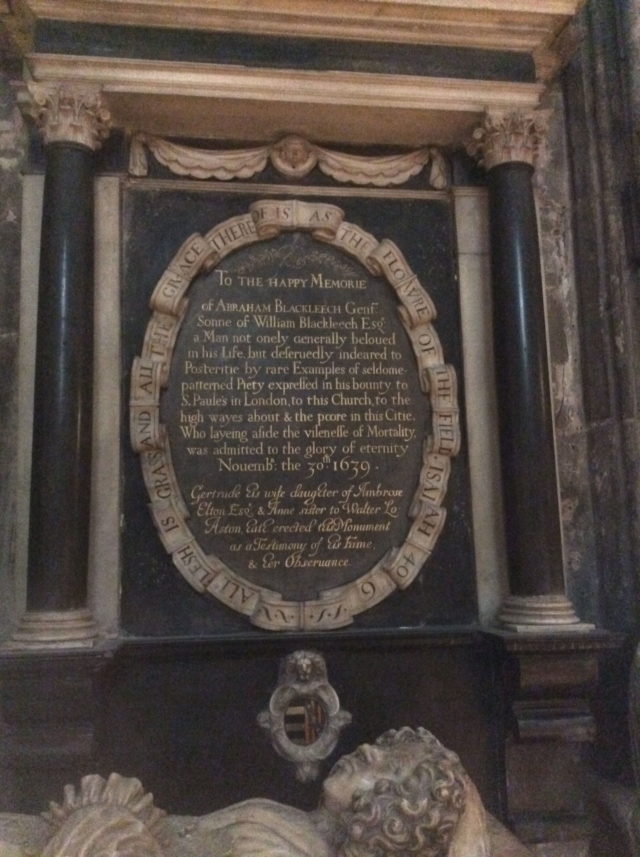 ALL FLESH IS GRASS AND ALL THE GRACE THEREOF IS AS THE FLOWRE OF THE FIELD. ISAIAH 40 6
TO THE HAPPY MEMORIE
of ABRAHAM BLACKLEECH Gent.
Sonne of William Blackleech Esq.
a Man not onely generally beloued
in his Life, but deseruedly indeared to
Posteritie by rare Examples of seldome-
patterned Piety expressed in his bounty to
S. Paule's in London, to this Church, to the
high wayes about & the poore in this Citie.
Who layeing aside the vilenesse of Mortality,
was admitted to the glory of eternity
Nouemb: the 30th 1639.
Gertrude his wife daughter of Ambrose
Elton Esq. & Anne sister to Walter Lo
Aston, hath erected this Monument
as a Testimony of his Fame,
& her Obseruance.